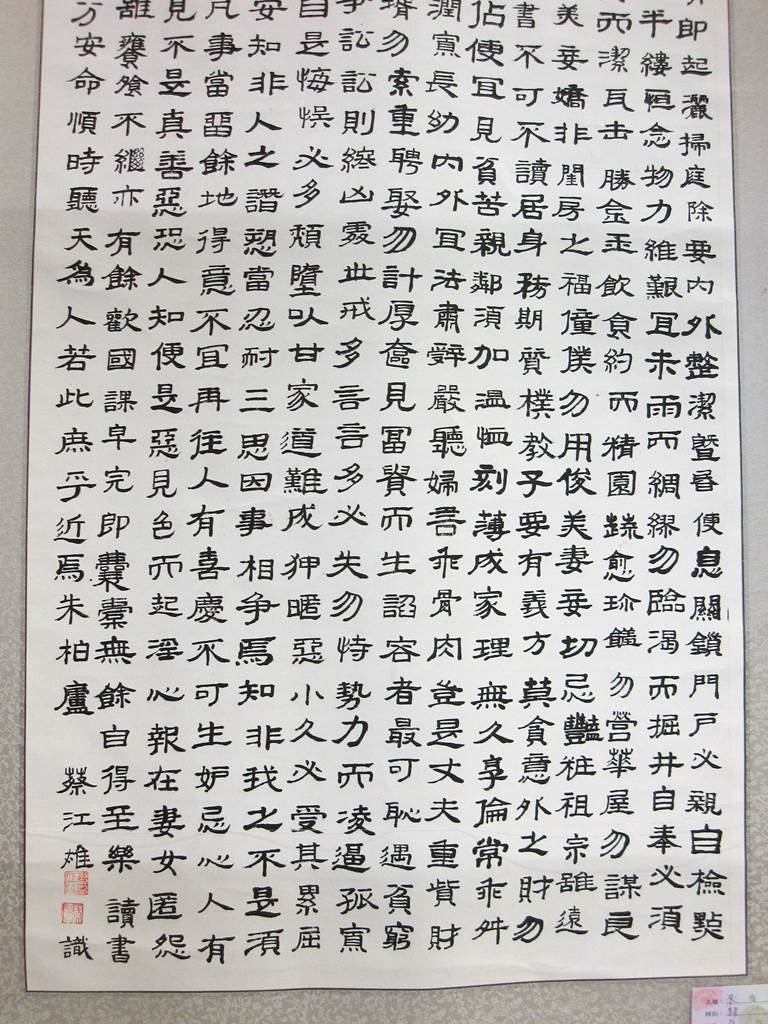 即起灑掃庭除要內外整潔暨昏便息關鎖門戶必親自檢點
半縷恒念物力維艱宜未雨而綢繆勿臨渴而掘井自奉必須
而潔瓦缶勝金玉飲食約而精園蔬愈珍饈勿營華屋勿謀良
美妾嬌非閨房之福僮僕勿用俊美妻妾切忌豔粧祖宗雖遠
書不可不讀居身務期質樸教子要有義方莫貪意外之財勿
佔便宜見貧苦親鄰須加溫恤刻薄成家理無久享倫常乖舛
潤寡長幼內外宜法肅辭嚴聽婦言乖骨肉豈是丈夫重貲財
壻勿索重聘娶勿計厚奩見富貴而生諂容者最可恥遇貧窮
爭訟訟則終凶處世戒多言言多必失勿恃勢力而凌逼孤寡
自是悔悞必多頹墮以甘家道難成狎暱惡小久必受其累屈
安知非人之譖愬當忍耐三思因事相爭焉知非我之不是須
凡事當留餘地得意不宜再往人有喜慶不可生妒忌心人有
見不是真善惡恐人知便是惡見色而起淫心報在妻女匿怨
雖饔飧不繼亦有餘歡國課早完即囊橐無餘自得至樂讀書
分安命順時聽天為人若此庶乎近焉朱柏廬 蔡江雄 識